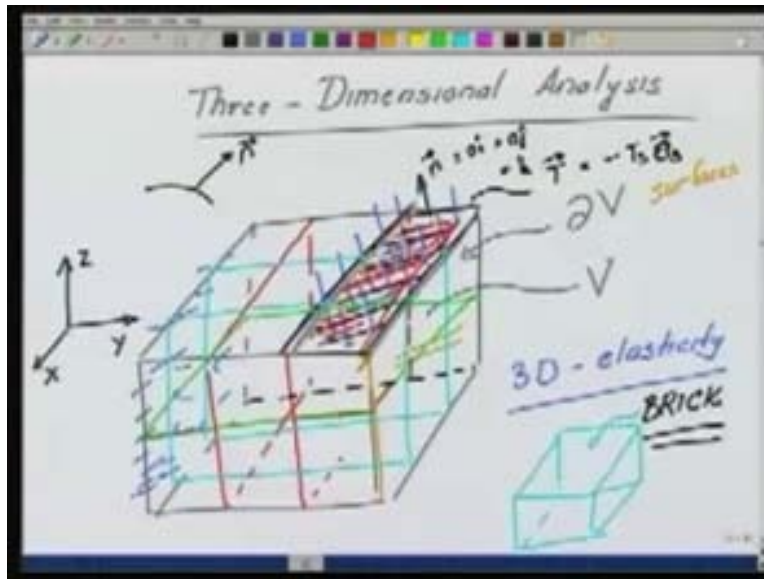 Three - Dimensional Analysis
n
n = 0i + 0j
∂V
surfaces
V
Z
Y
X
3D - elasticity
BRICK